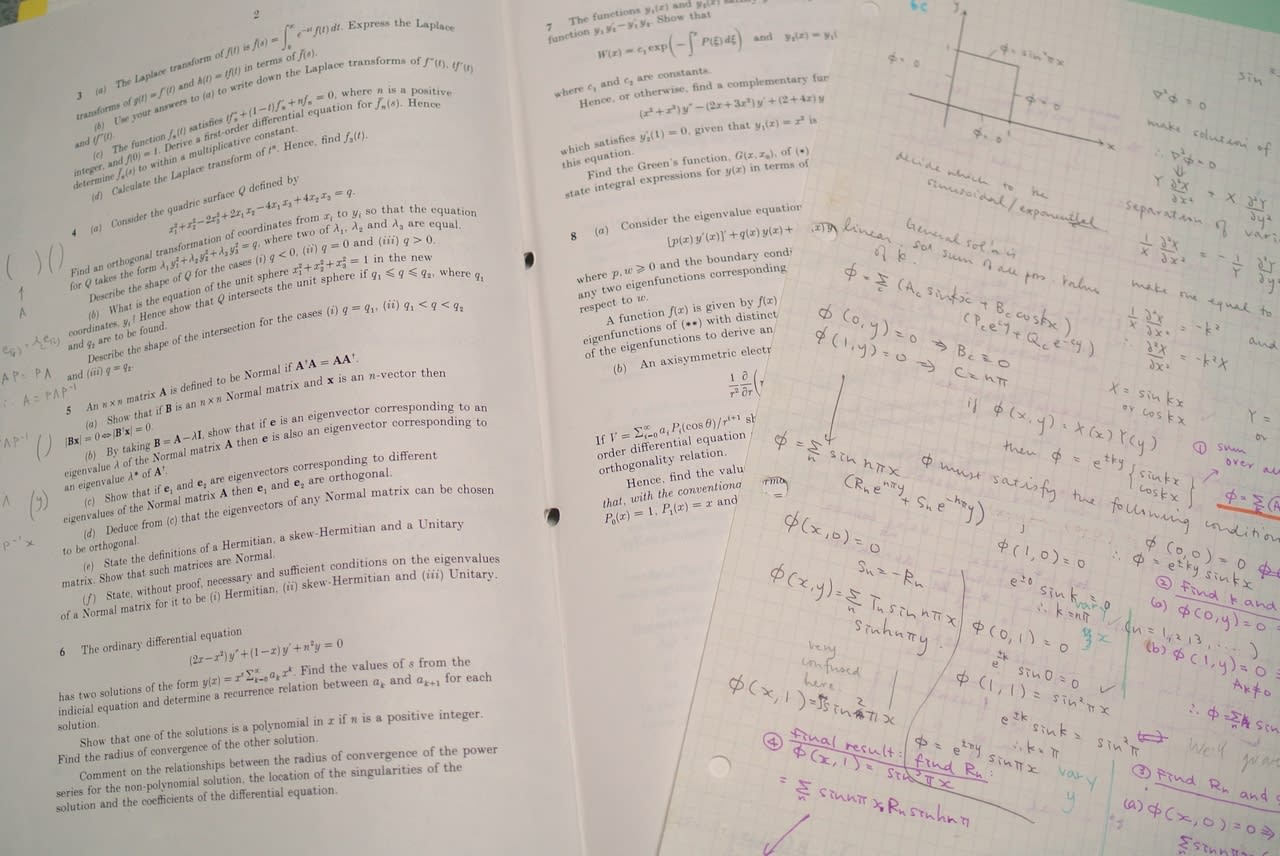 2
3 (a) The Laplace transform of f(t) is f̄(s) = ∫₀^∞ e^{-st} f(t) dt. Express the Laplace
transforms of g(t) = f′(t) and h(t) = tf(t) in terms of f̄(s).
(b) Use your answers to (a) to write down the Laplace transforms of f″(t), tf′(t)
and tf″(t).
(c) The function fₙ(t) satisfies tfₙ″ + (1−t)fₙ′ + nfₙ = 0, where n is a positive
integer, and f(0) = 1. Derive a first-order differential equation for f̄ₙ(s). Hence
determine f̄ₙ(s) to within a multiplicative constant.
(d) Calculate the Laplace transform of tⁿ. Hence, find f₃(t).
4 (a) Consider the quadric surface Q defined by
x₁²+x₂²−2x₃²+2x₁x₂−4x₁x₃+4x₂x₃ = q.
Find an orthogonal transformation of coordinates from xᵢ to yᵢ so that the equation
for Q takes the form λ₁y₁²+λ₂y₂²+λ₃y₃² = q, where two of λ₁, λ₂ and λ₃ are equal.
Describe the shape of Q for the cases (i) q < 0, (ii) q = 0 and (iii) q > 0.
(b) What is the equation of the unit sphere x₁²+x₂²+x₃² = 1 in the new
coordinates, yᵢ? Hence show that Q intersects the unit sphere if q₁ ⩽ q ⩽ q₂, where q₁
and q₂ are to be found.
Describe the shape of the intersection for the cases (i) q = q₁, (ii) q₁ < q < q₂
and (iii) q = q₂.
AP = PΛ
∴ A = PΛP⁻¹
5 An n×n matrix A is defined to be Normal if A†A = AA†.
(a) Show that if B is an n×n Normal matrix and x is an n-vector then
|Bx| = 0 ⇔ |B†x| = 0.
(b) By taking B = A−λI, show that if e is an eigenvector corresponding to an
eigenvalue λ of the Normal matrix A then e is also an eigenvector corresponding to
an eigenvalue λ* of A†.
(c) Show that if e₁ and e₂ are eigenvectors corresponding to different
eigenvalues of the Normal matrix A then e₁ and e₂ are orthogonal.
(d) Deduce from (c) that the eigenvectors of any Normal matrix can be chosen
to be orthogonal.
(e) State the definitions of a Hermitian, a skew-Hermitian and a Unitary
matrix. Show that such matrices are Normal.
(f) State, without proof, necessary and sufficient conditions on the eigenvalues
of a Normal matrix for it to be (i) Hermitian, (ii) skew-Hermitian and (iii) Unitary.
6 The ordinary differential equation
(2x−x²)y″+(1−x)y′+n²y = 0
has two solutions of the form y(x) = xˢ∑_{k=0}^∞ aₖxᵏ. Find the values of s from the
indicial equation and determine a recurrence relation between aₖ and aₖ₊₁ for each
solution.
Show that one of the solutions is a polynomial in x if n is a positive integer.
Find the radius of convergence of the other solution.
Comment on the relationships between the radius of convergence of the power
series for the non-polynomial solution, the location of the singularities of the
solution and the coefficients of the differential equation.
7 The functions y₁(x) and y₂(x)
function y₁y₂′−y₁′y₂. Show that
W(x) = c₁ exp(−∫ˣ P(ξ)dξ) and y₂(x) = y₁(
where c₁ and c₂ are constants.
Hence, or otherwise, find a complementary fun
(x²+x³)y″−(2x+3x²)y′+(2+4x)y
which satisfies y₂′(1) = 0, given that y₁(x) = x² is
this equation.
Find the Green's function, G(x, x₀), of (*)
state integral expressions for y(x) in terms of
8 (a) Consider the eigenvalue equation
[p(x)y′(x)]′ + q(x)y(x) +
where p, w ⩾ 0 and the boundary condi
any two eigenfunctions corresponding
respect to w.
A function f(x) is given by f(x)
eigenfunctions of (**) with distinct
of the eigenfunctions to derive an
(b) An axisymmetric electr
1/r² ∂/∂r (
If V = ∑_{l=0}^∞ aₗPₗ(cosθ)/r^{l+1} sh
order differential equation
orthogonality relation.
Hence, find the valu
that, with the conventiona
P₀(x) = 1, P₁(x) = x and
y
φ = sin²πx
φ = 0
φ = 0
φ = 0
x
decide which to be
sinusoidal/exponential
General sol'n is
linear: sol. sum of all pos. values
of k.
φ = ∑ (A_c sin kx + B_c cos kx)
φ(0,y) = 0 ⇒ B_c = 0
φ(1,y) = 0 ⇒ c = nπ
φ = ∑ₙ sin nπx
(Rₙe^{nπy} + Sₙe^{-nπy})
φ(x,0) = 0
Sₙ = −Rₙ
φ(x,y) = ∑ₙ Tₙ sin nπx
sinh nπy
very
confused
here.
④ final result: find Rₙ:
φ(x,1) = sin²πx
= ∑ₙ sin nπx Rₙ sinh nπ
sin
∇²φ = 0
make solution of
∴ ∇²φ = 0
Y ∂²X/∂x² + X ∂²Y/∂y²
separation of vari
1/X ∂²X/∂x² = −1/Y ∂²Y/∂y²
make one equal to
1/X ∂²X/∂x² = −k² and
∴ ∂²X/∂x² = −k²X
X = sin kx
or cos kx
Y =
or
if φ(x,y) = X(x)Y(y)
then φ = e^{±ky} {sin kx
cos kx}
① sum
over all
φ must satisfy the following condition
φ(0,0) = 0
∴ φ = e^{±ky} sin kx
φ(1,0) = 0
e^{±0} sin k = 0
∴ k = nπ
(n = 1, 2, 3, ...)
vary
x
φ(0,1) = 0
e^{±k} sin 0 = 0 ✓
φ(1,1) = sin²πx
e^{±k} sin k = sin²π
∴ k = π
φ = e^{±πy} sin πx
vary
y
② find k and
(a) φ(0,y) = 0
(b) φ(1,y) = 0
A_k ≠ 0
③ Find Rₙ and
(a) φ(x,0) = 0 ⇒